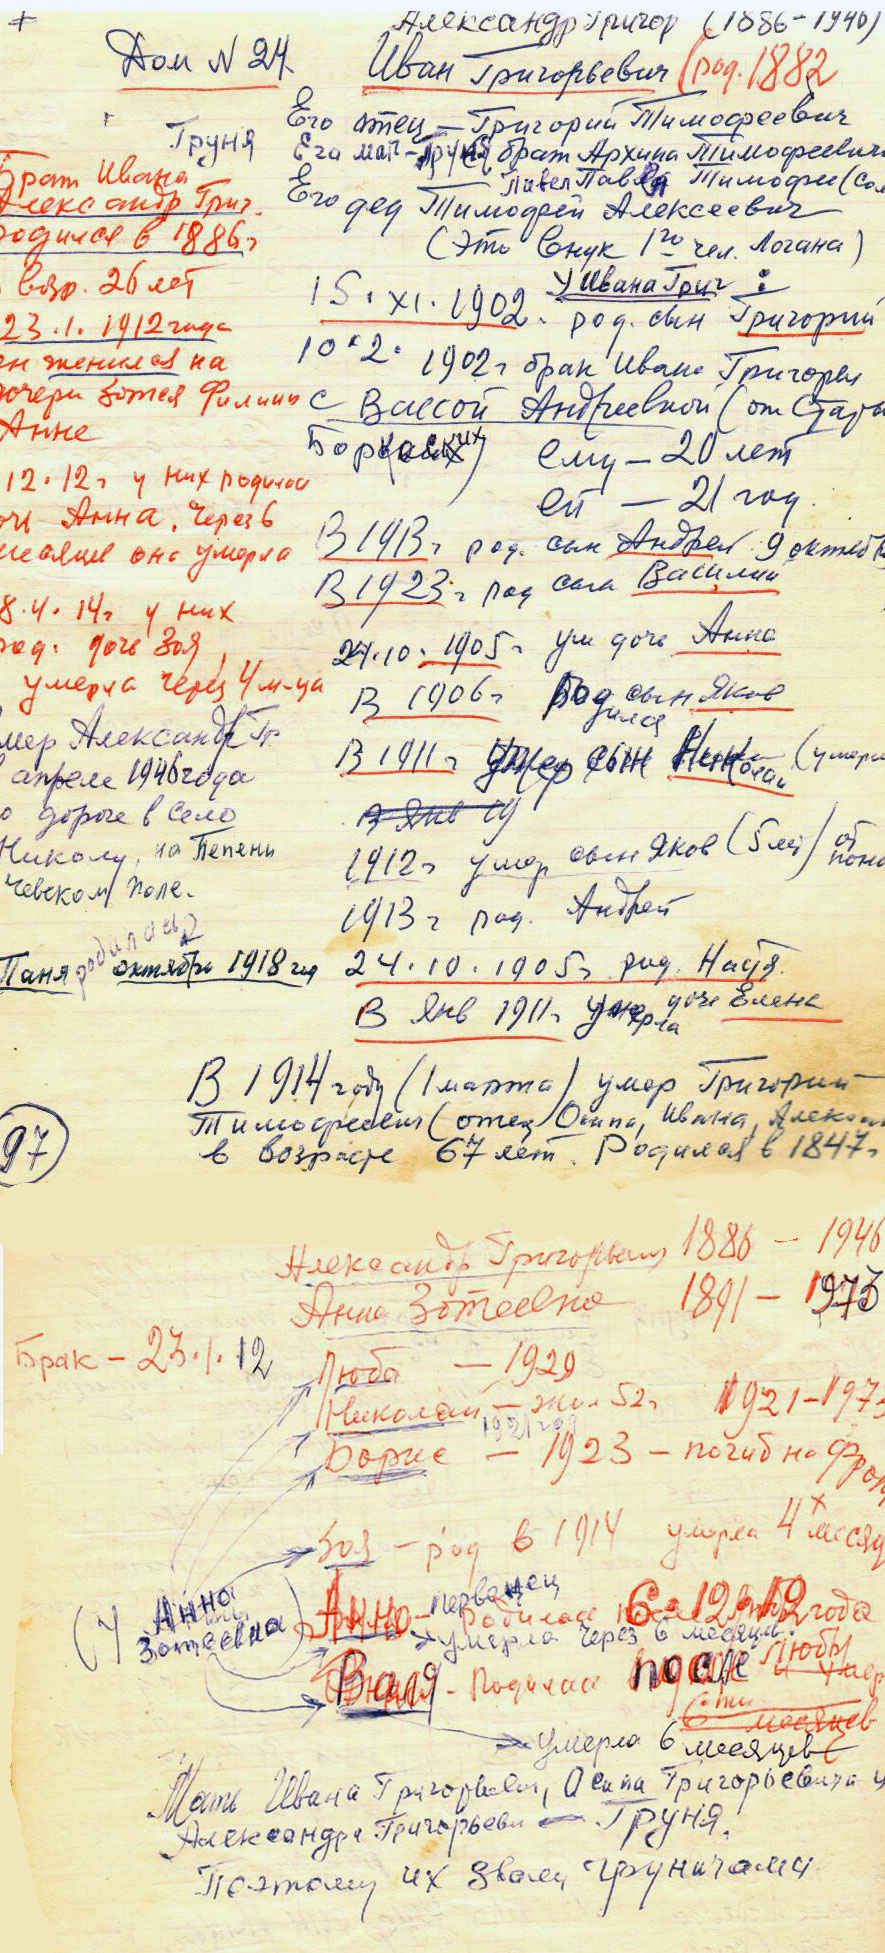 Александр Григор (1886-1946)
Дом N 24. Иван Григорьевич (род. 1882
Его отец - Григорий Тимофеевич
Груня
Его мать - Груня брат Архипа Тимофеевича
Павел Тимофее
Его дед Тимофей Алексеевич
(Это внук 1го чел. Логана)
Брат Ивана
Александр Григ.
родился в 1886г
в возр. 26 лет
23.1.1912 года
он женился на
дочери Зотея Филипп
Анне
12.12г у них родилась
дочь Анна. Через 6
месяцев она умерла
8.4.14г у них
род. дочь Зоя,
умерла через 4 м-ца
умер Александр Гр
в апреле 1946 года
по дороге в село
Николу, на Пепени
чевском поле.
Паня родилась 2 октября 1918 год
97
У Ивана Григ:
15.XI.1902. род. сын Григорий
10.2. 1902г брак Ивана Григорьев
с Вассой Андреевной (от Стары
Борковских) ему - 20 лет
ей - 21 год.
В 1913г род. сын Андрей 9 октябр
В 1923г род сын Василий
24.10.1905г ум дочь Анна
В 1906г Родился сын Яков
В 1911г умер сын Николай (умерл
В янв 19
1912г умер сын Яков (5 лет) от поно
1913г род. Андрей
24.10.1905г род. Настя.
В янв 1911г умерла дочь Елена
В 1914 году (1 марта) умер Григорий
Тимофеевич (отец Осипа, Ивана, Алекса
в возрасте 67 лет. Родился в 1847г
Александр Григорьевич 1886 - 1946
Анна Зотеевна 1891 - 1973
Брак - 23.1.12
Люба - 1929
Николай - 52г 1921-197
1921 год
Борис - 1923 - погиб на Фрон
Зоя - род в 1914 умерла 4х месяц
(У Анны Зотеевны
Анна - первенец родилась 6.12.12 года
умерла через 6 месяцев.
Валя - родилась после Любы и умер
6ти месяцев
умерла 6 месяцев
Мать Ивана Григорьевич, Осипа Григорьевича и
Александра Григорьеви - Груня.
Поэтому их звали груничами